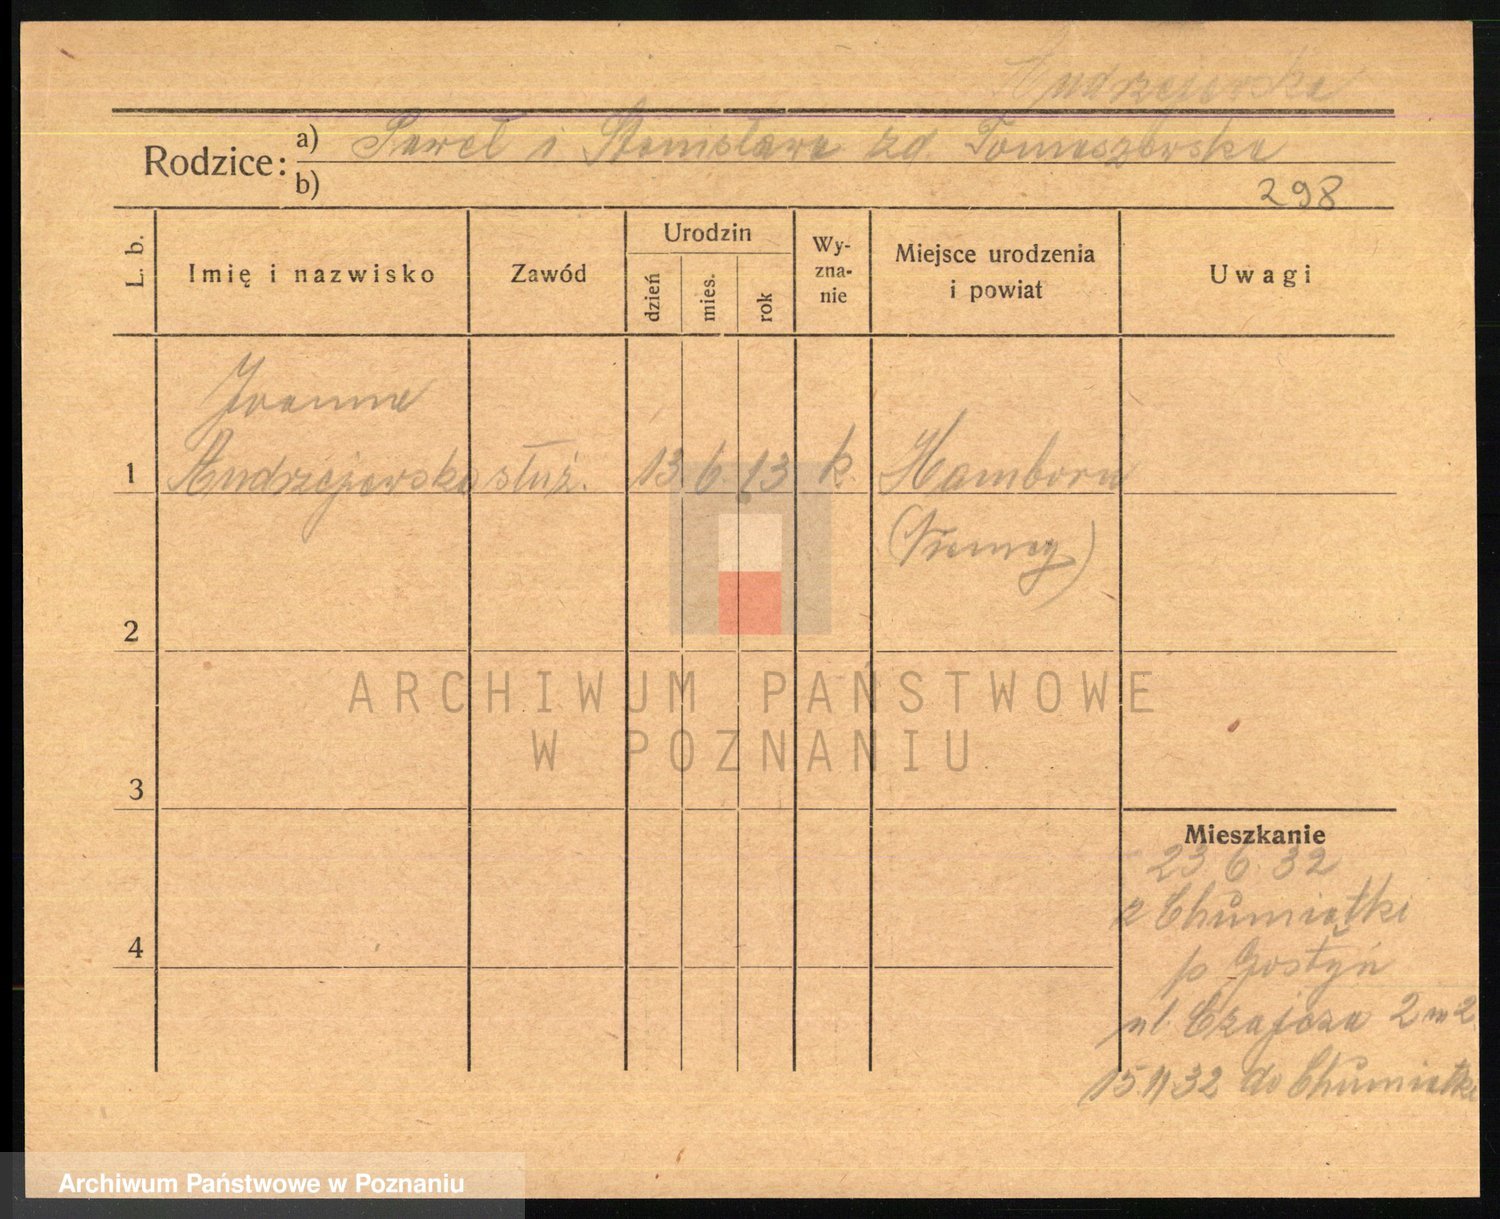 Andrzejewska
Rodzice: a) Paweł i Stanisława zd Tomaszewska
b)
298
L. b.
Imię i nazwisko
Zawód
Urodzin
dzień
mies.
rok
Wy-
zna-
nie
Miejsce urodzenia
i powiat
Uwagi
Joanna
1 Andrzejewska służ. 13. 6. 13 k. Hamborn
(Niemcy)
2
ARCHIWUM PAŃSTWOWE
W POZNANIU
3
Mieszkanie
23.6.32
z Chumiętki
4
p Gostyń
ul Czajcza 2 m 2
15.11 32 do Chumiętki
Archiwum Państwowe w Poznaniu